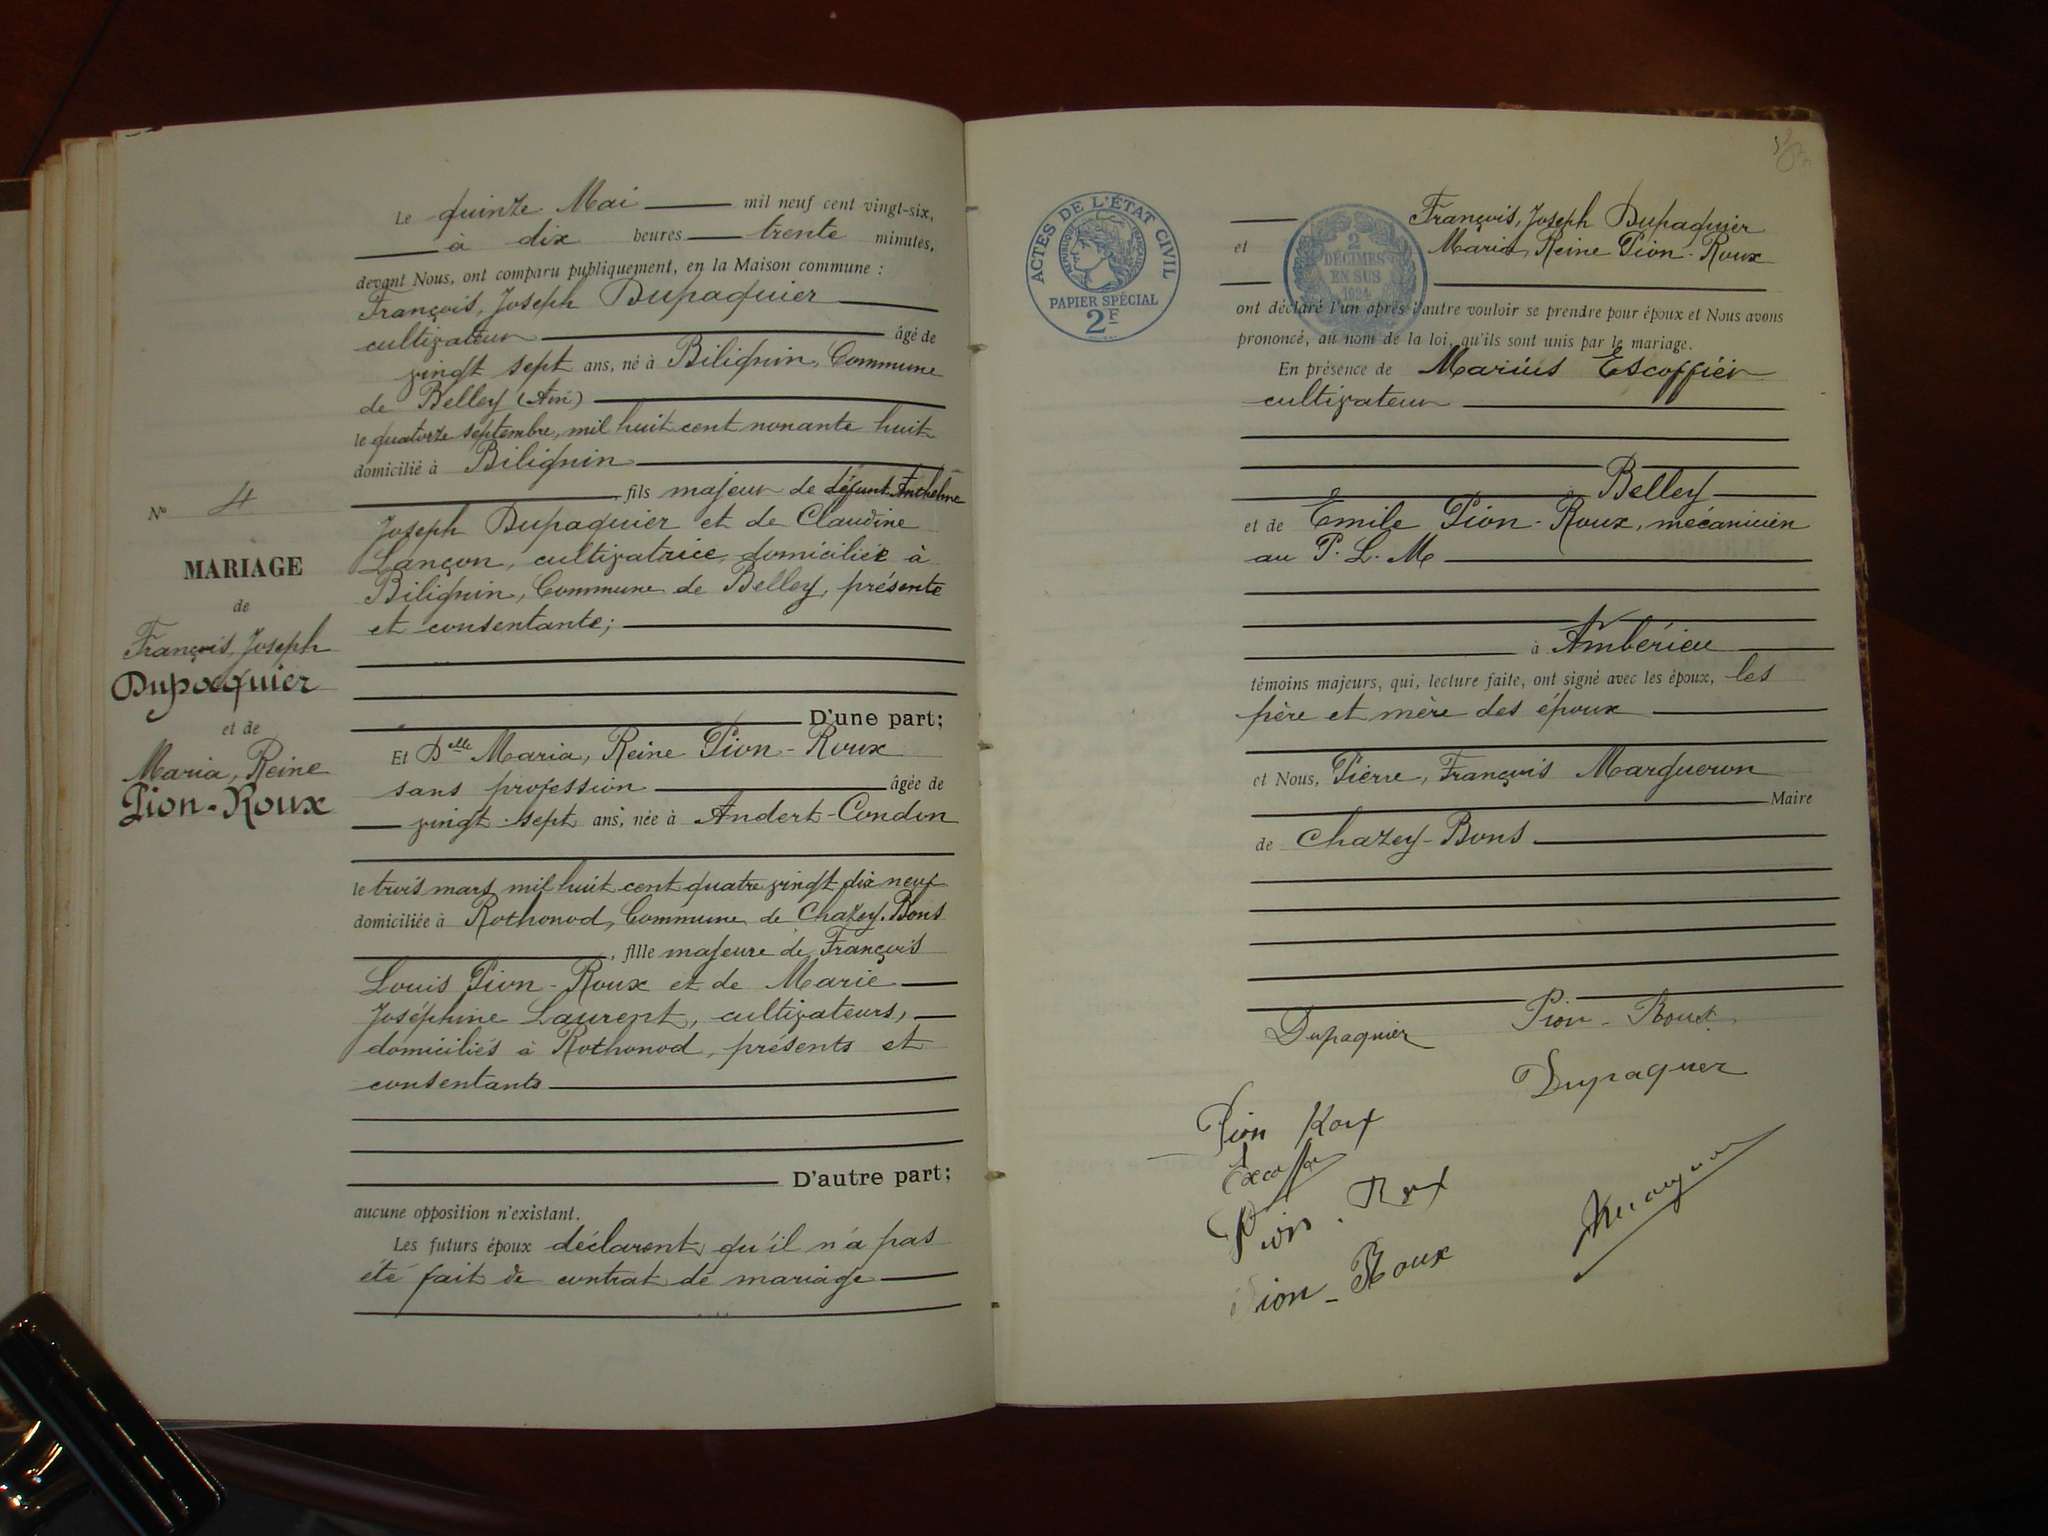 Le quinze Mai mil neuf cent vingt-six,
à dix heures trente minutes,
devant Nous, ont comparu publiquement, en la Maison commune :
François, Joseph Dupaquier
cultivateur âgé de
vingt sept ans, né à Bilignin, Commune
de Belley (Ain)
le quatorze septembre, mil huit cent nonante huit
domicilié à Bilignin
, fils majeur de défunt Anthelme
Joseph Dupaquier et de Claudine
Lançon, cultivatrice, domiciliée à
Bilignin, Commune de Belley, présente
et consentante;
D'une part;
Et Delle Maria, Reine Pion-Roux
sans profession âgée de
vingt-sept ans, née à Andert-Condon
le trois mars mil huit cent quatre vingt dix neuf
domiciliée à Rothonod, Commune de Chazey-Bons
, fille majeure de François
Louis Pion-Roux et de Marie
Joséphine Laurent, cultivateurs,
domiciliés à Rothonod, présents et
consentants
D'autre part;
aucune opposition n'existant.
Les futurs époux déclarent qu'il n'a pas
été fait de contrat de mariage
N° 4
MARIAGE
de
François, Joseph
Dupaquier
et de
Maria, Reine
Pion-Roux
ACTES DE L'ÉTAT CIVIL
RÉPUBLIQUE FRANÇAISE
PAPIER SPÉCIAL
2F
2
DÉCIMES
EN SUS
1924
François, Joseph Dupaquier
et Maria, Reine Pion-Roux
ont déclaré l'un après l'autre vouloir se prendre pour époux et Nous avons
prononcé, au nom de la loi, qu'ils sont unis par le mariage.
En présence de Marius Escoffier
cultivateur
Belley
et de Emile Pion-Roux, mécanicien
au P. L. M
à Ambérieu
témoins majeurs, qui, lecture faite, ont signé avec les époux, les
père et mère des époux
et Nous, Pierre, François Margueron
Maire
de Chazey-Bons
Dupaquier Pion-Roux
Dupaquier
Pion Roux
Pion-Roux
Pion-Roux